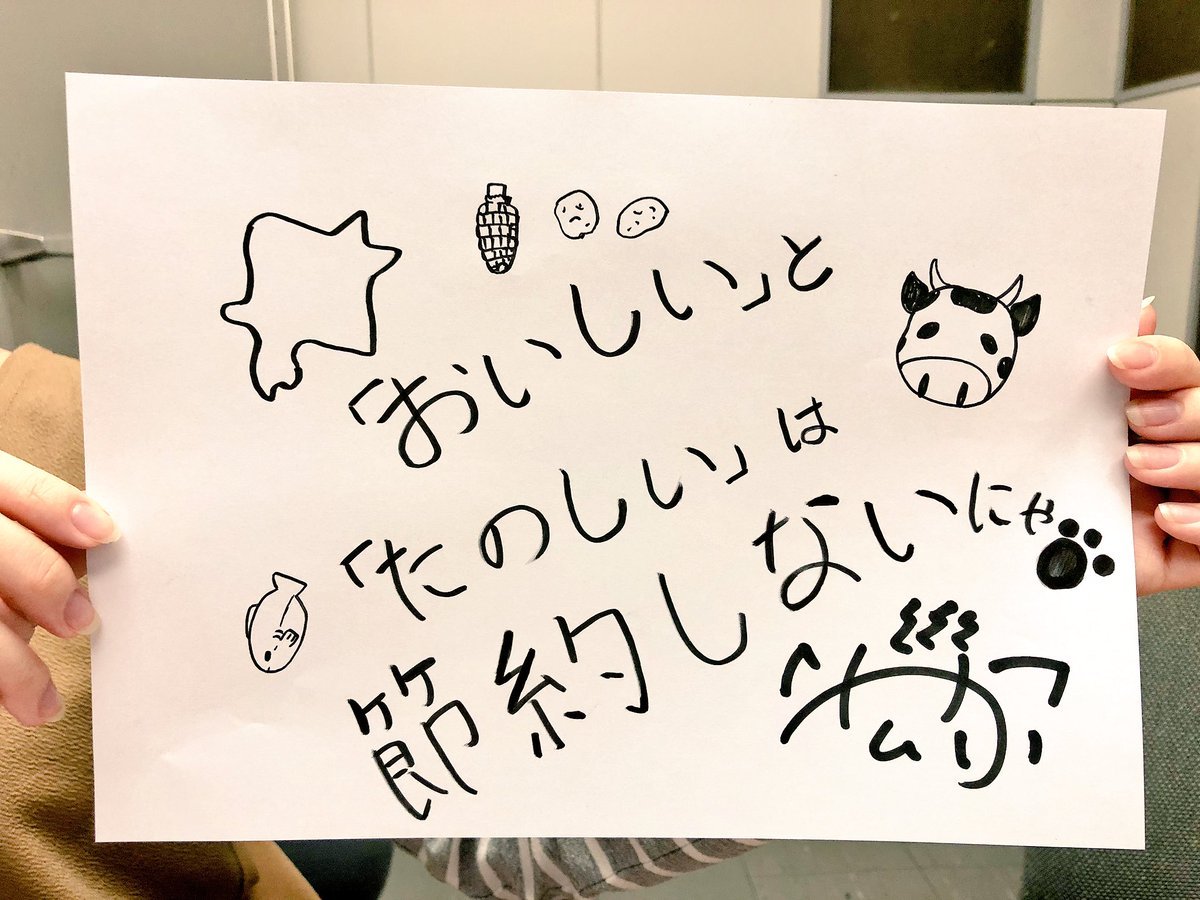 「おいしい」と
「たのしい」は
節約しないにゃ